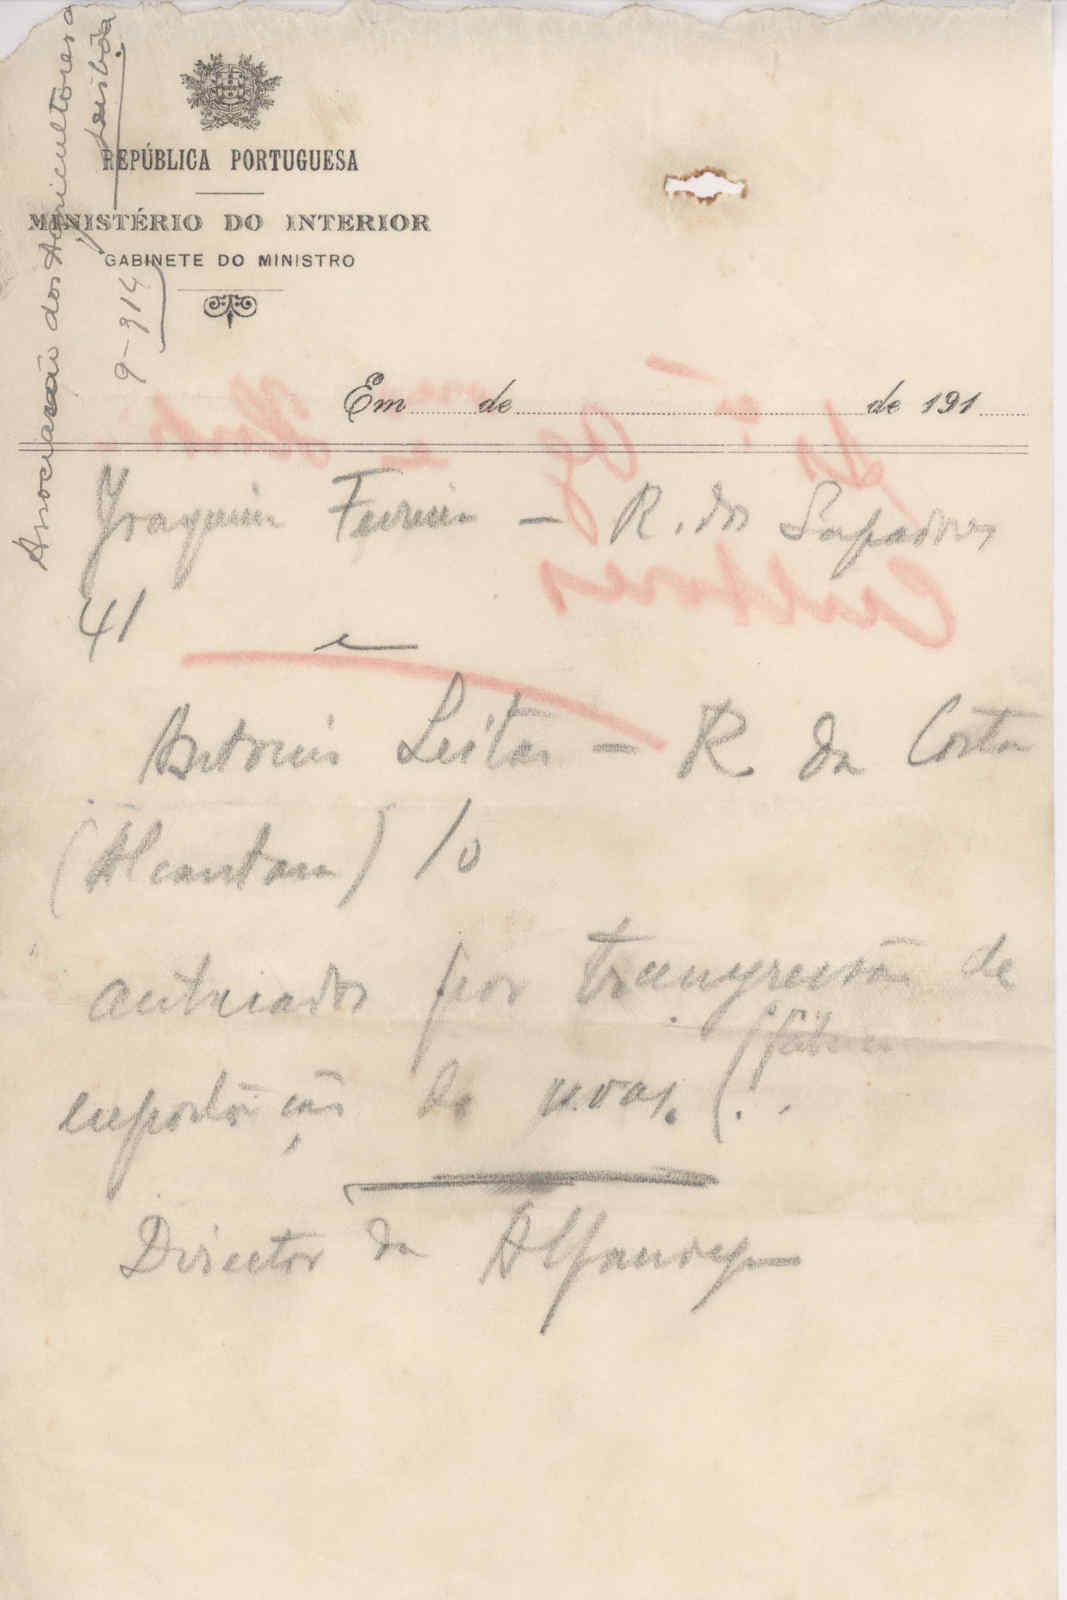 Associação dos Agricultores
Lisbôa
9-914
REPÚBLICA PORTUGUESA
MINISTÉRIO DO INTERIOR
GABINETE DO MINISTRO
Em de de 191
Joaquim Ferreira — R. dos Sapadores
41
e
Antonio Leitão — R da Costa
(Alcantara) 10
autuados por transgressão de
exportação de uvas.
Director da Alfandega